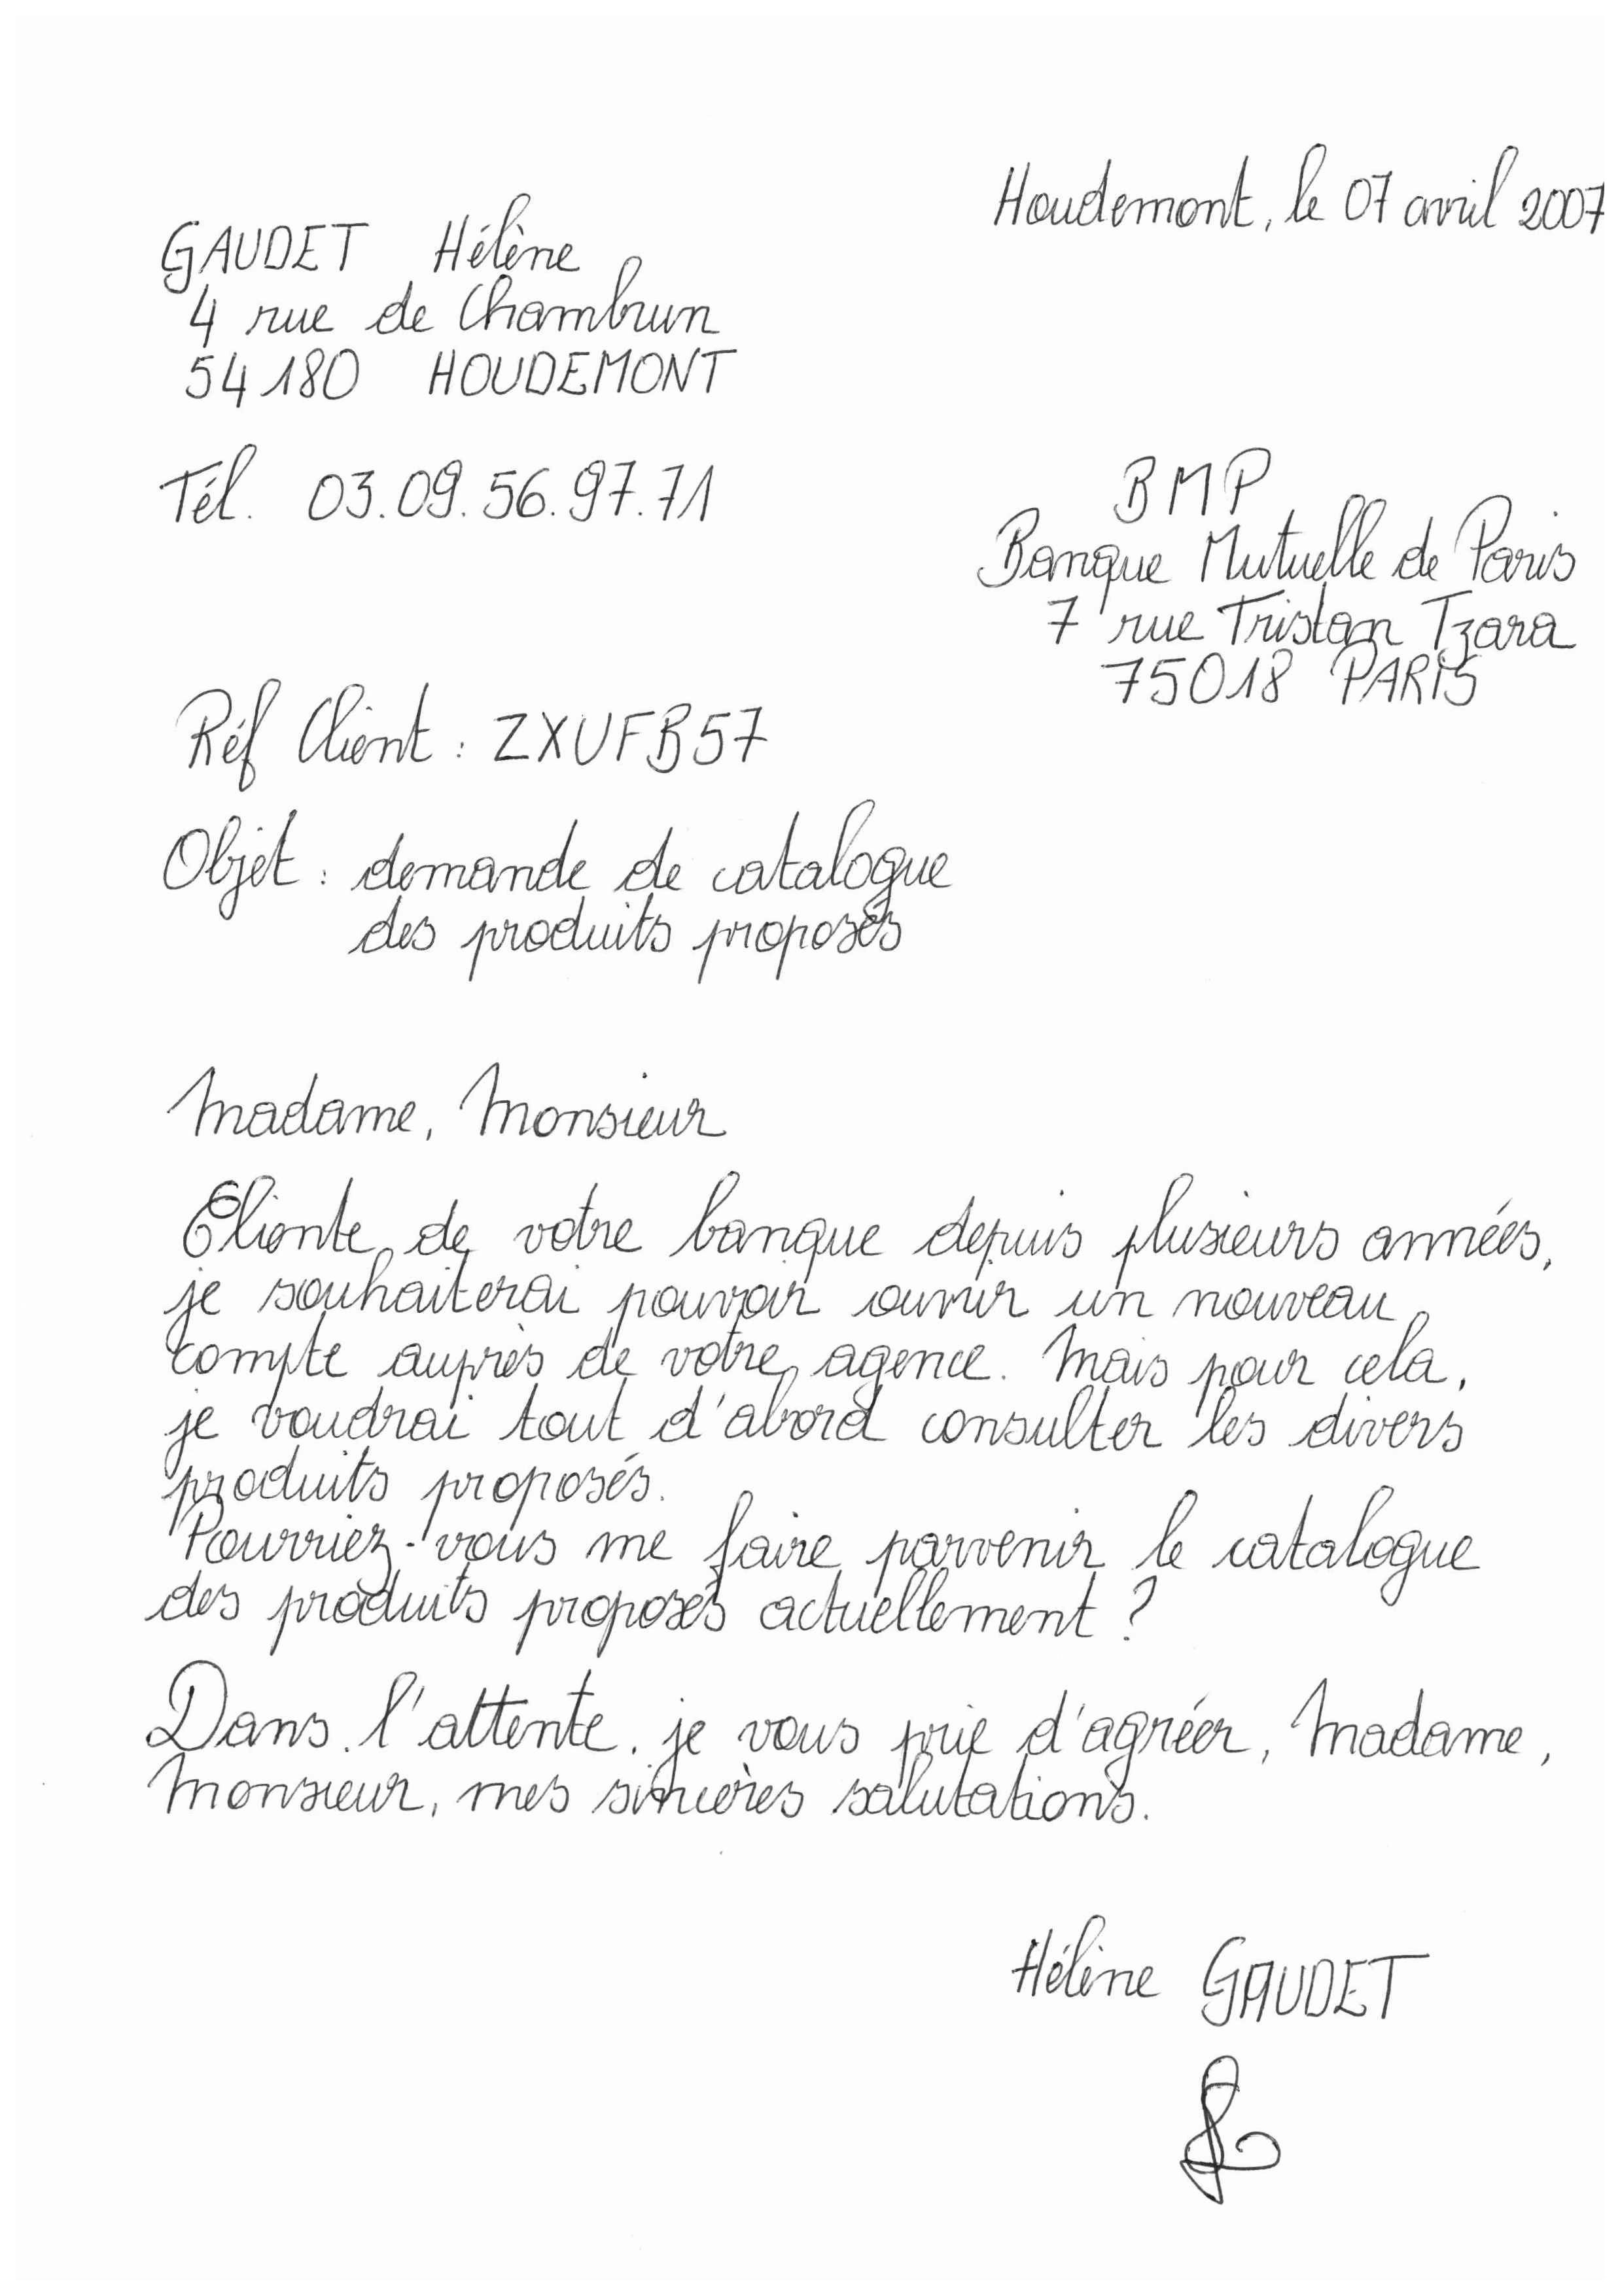 Houdemont, le 07 avril 2007
GAUDET Hélène
4 rue de Chambrun
54180 HOUDEMONT
Tél. 03.09.56.97.71
BMP
Banque Mutuelle de Paris
7 rue Tristan Tzara
75018 PARIS
Réf Client : ZXUFB57
Objet : demande de catalogue
des produits proposés
Madame, Monsieur
Cliente de votre banque depuis plusieurs années,
je souhaiterai pouvoir ouvrir un nouveau
compte auprès de votre agence. Mais pour cela,
je voudrai tout d'abord consulter les divers
produits proposés.
Pourriez-vous me faire parvenir le catalogue
des produits proposés actuellement ?
Dans l'attente, je vous prie d'agréer, Madame,
Monsieur, mes sincères salutations.
Hélène GAUDET